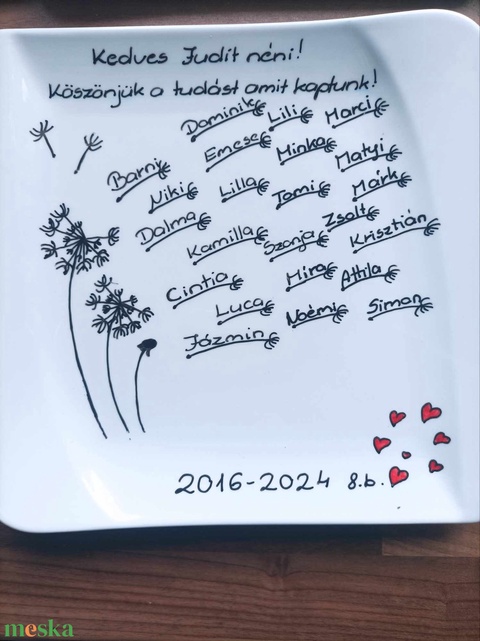 Kedves Judit néni!
Köszönjük a tudást amit kaptunk!
Dominik Lili Marci
Emese Minka Matyi
Barni Niki Lilla Tomi Márk
Dalma Kamilla Szonja Zsolt Krisztián
Cintia Mira Attila
Luca Noémi Simon
Jázmin
2016-2024 8.b.
meska